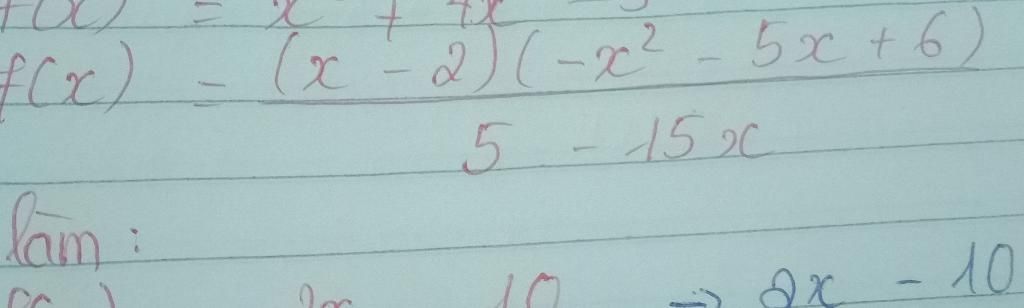 f(x) = x + 4x
f(x) = (x - 2)(-x² - 5x + 6)
5 - 15x
làm :
2x 10 → 2x - 10